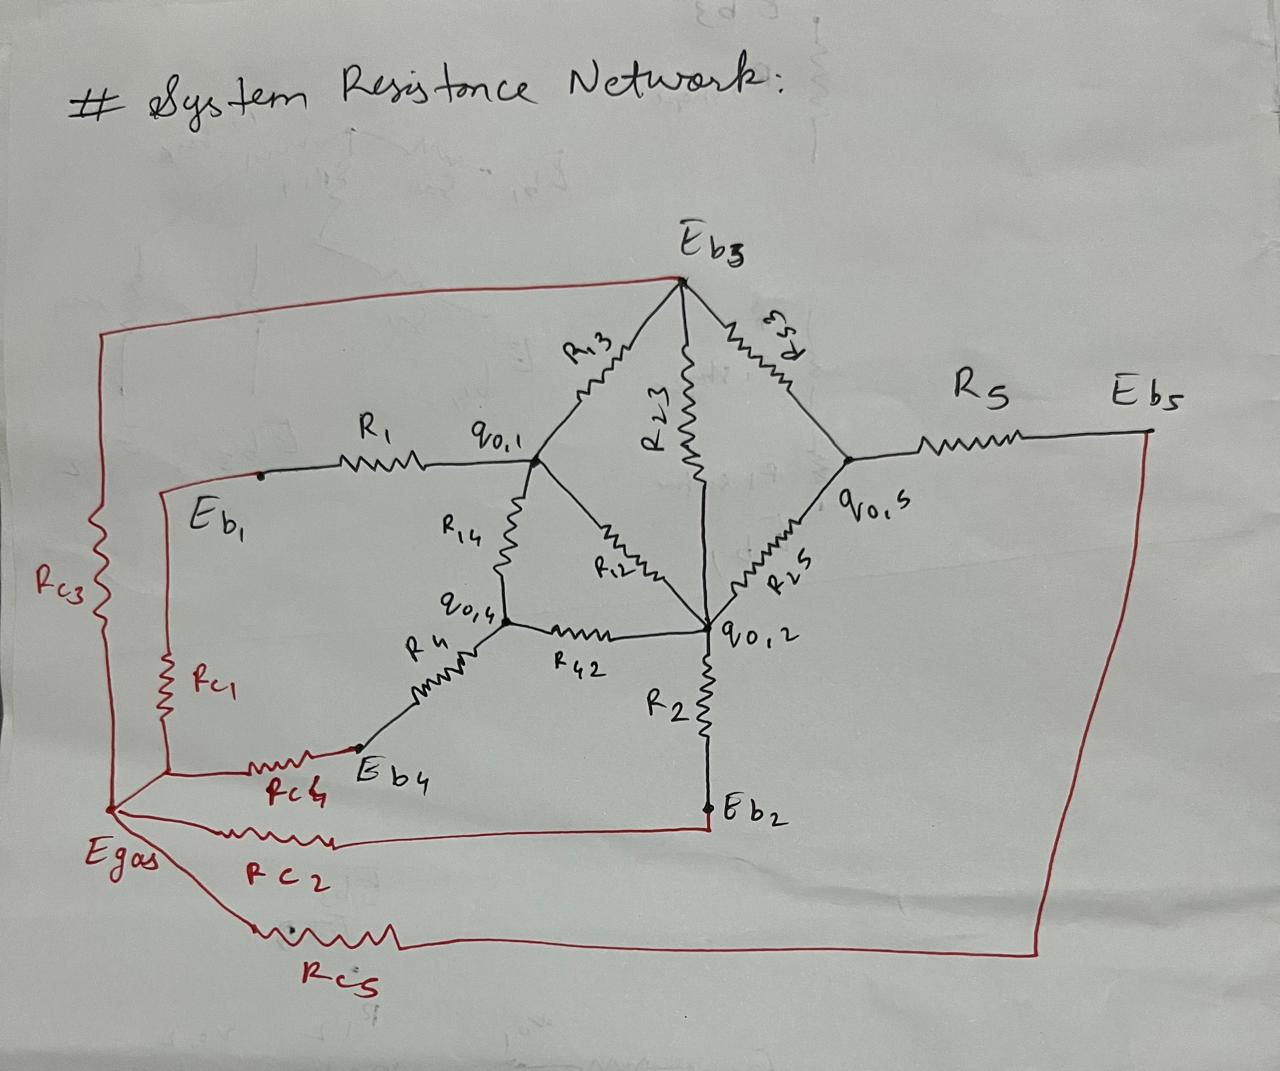 # System Resistance Network:
Eb3
R13
R53
R23
R5
Eb5
R1
q0,1
Eb1
R14
R12
q0,5
R25
Rc3
q0,4
q0,2
R4
R42
Rc1
R2
Eb4
Rc4
Eb2
Egas
Rc2
Rc5